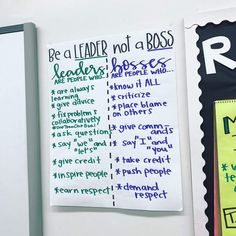 Be a LEADER not a BOSS
leaders
ARE PEOPLE WHO...
* are always
learning
* give advice
* fix problems
collaboratively
* ask questions
* say "we" and
"let's"
* give credit
* inspire people
* earn respect
bosses
ARE PEOPLE WHO...
* know it ALL
* criticize
* place blame
on others
* give comm-
ands
* say "I" and
"you"
* take credit
* push people
* demand
respect
R